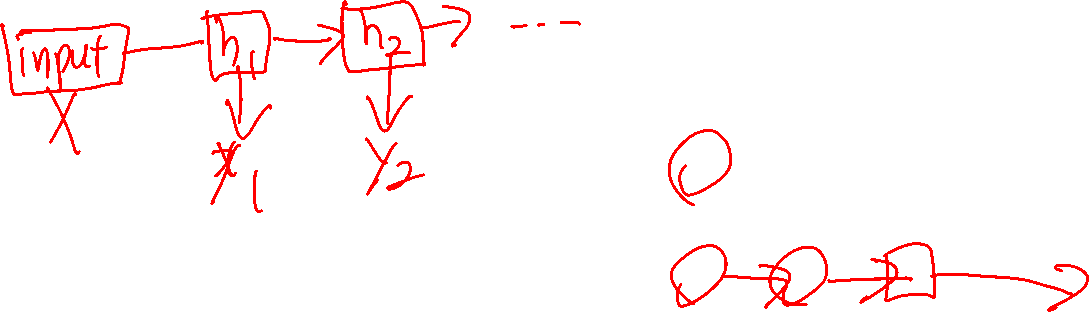 input h1 h2 ...
X y1 y2